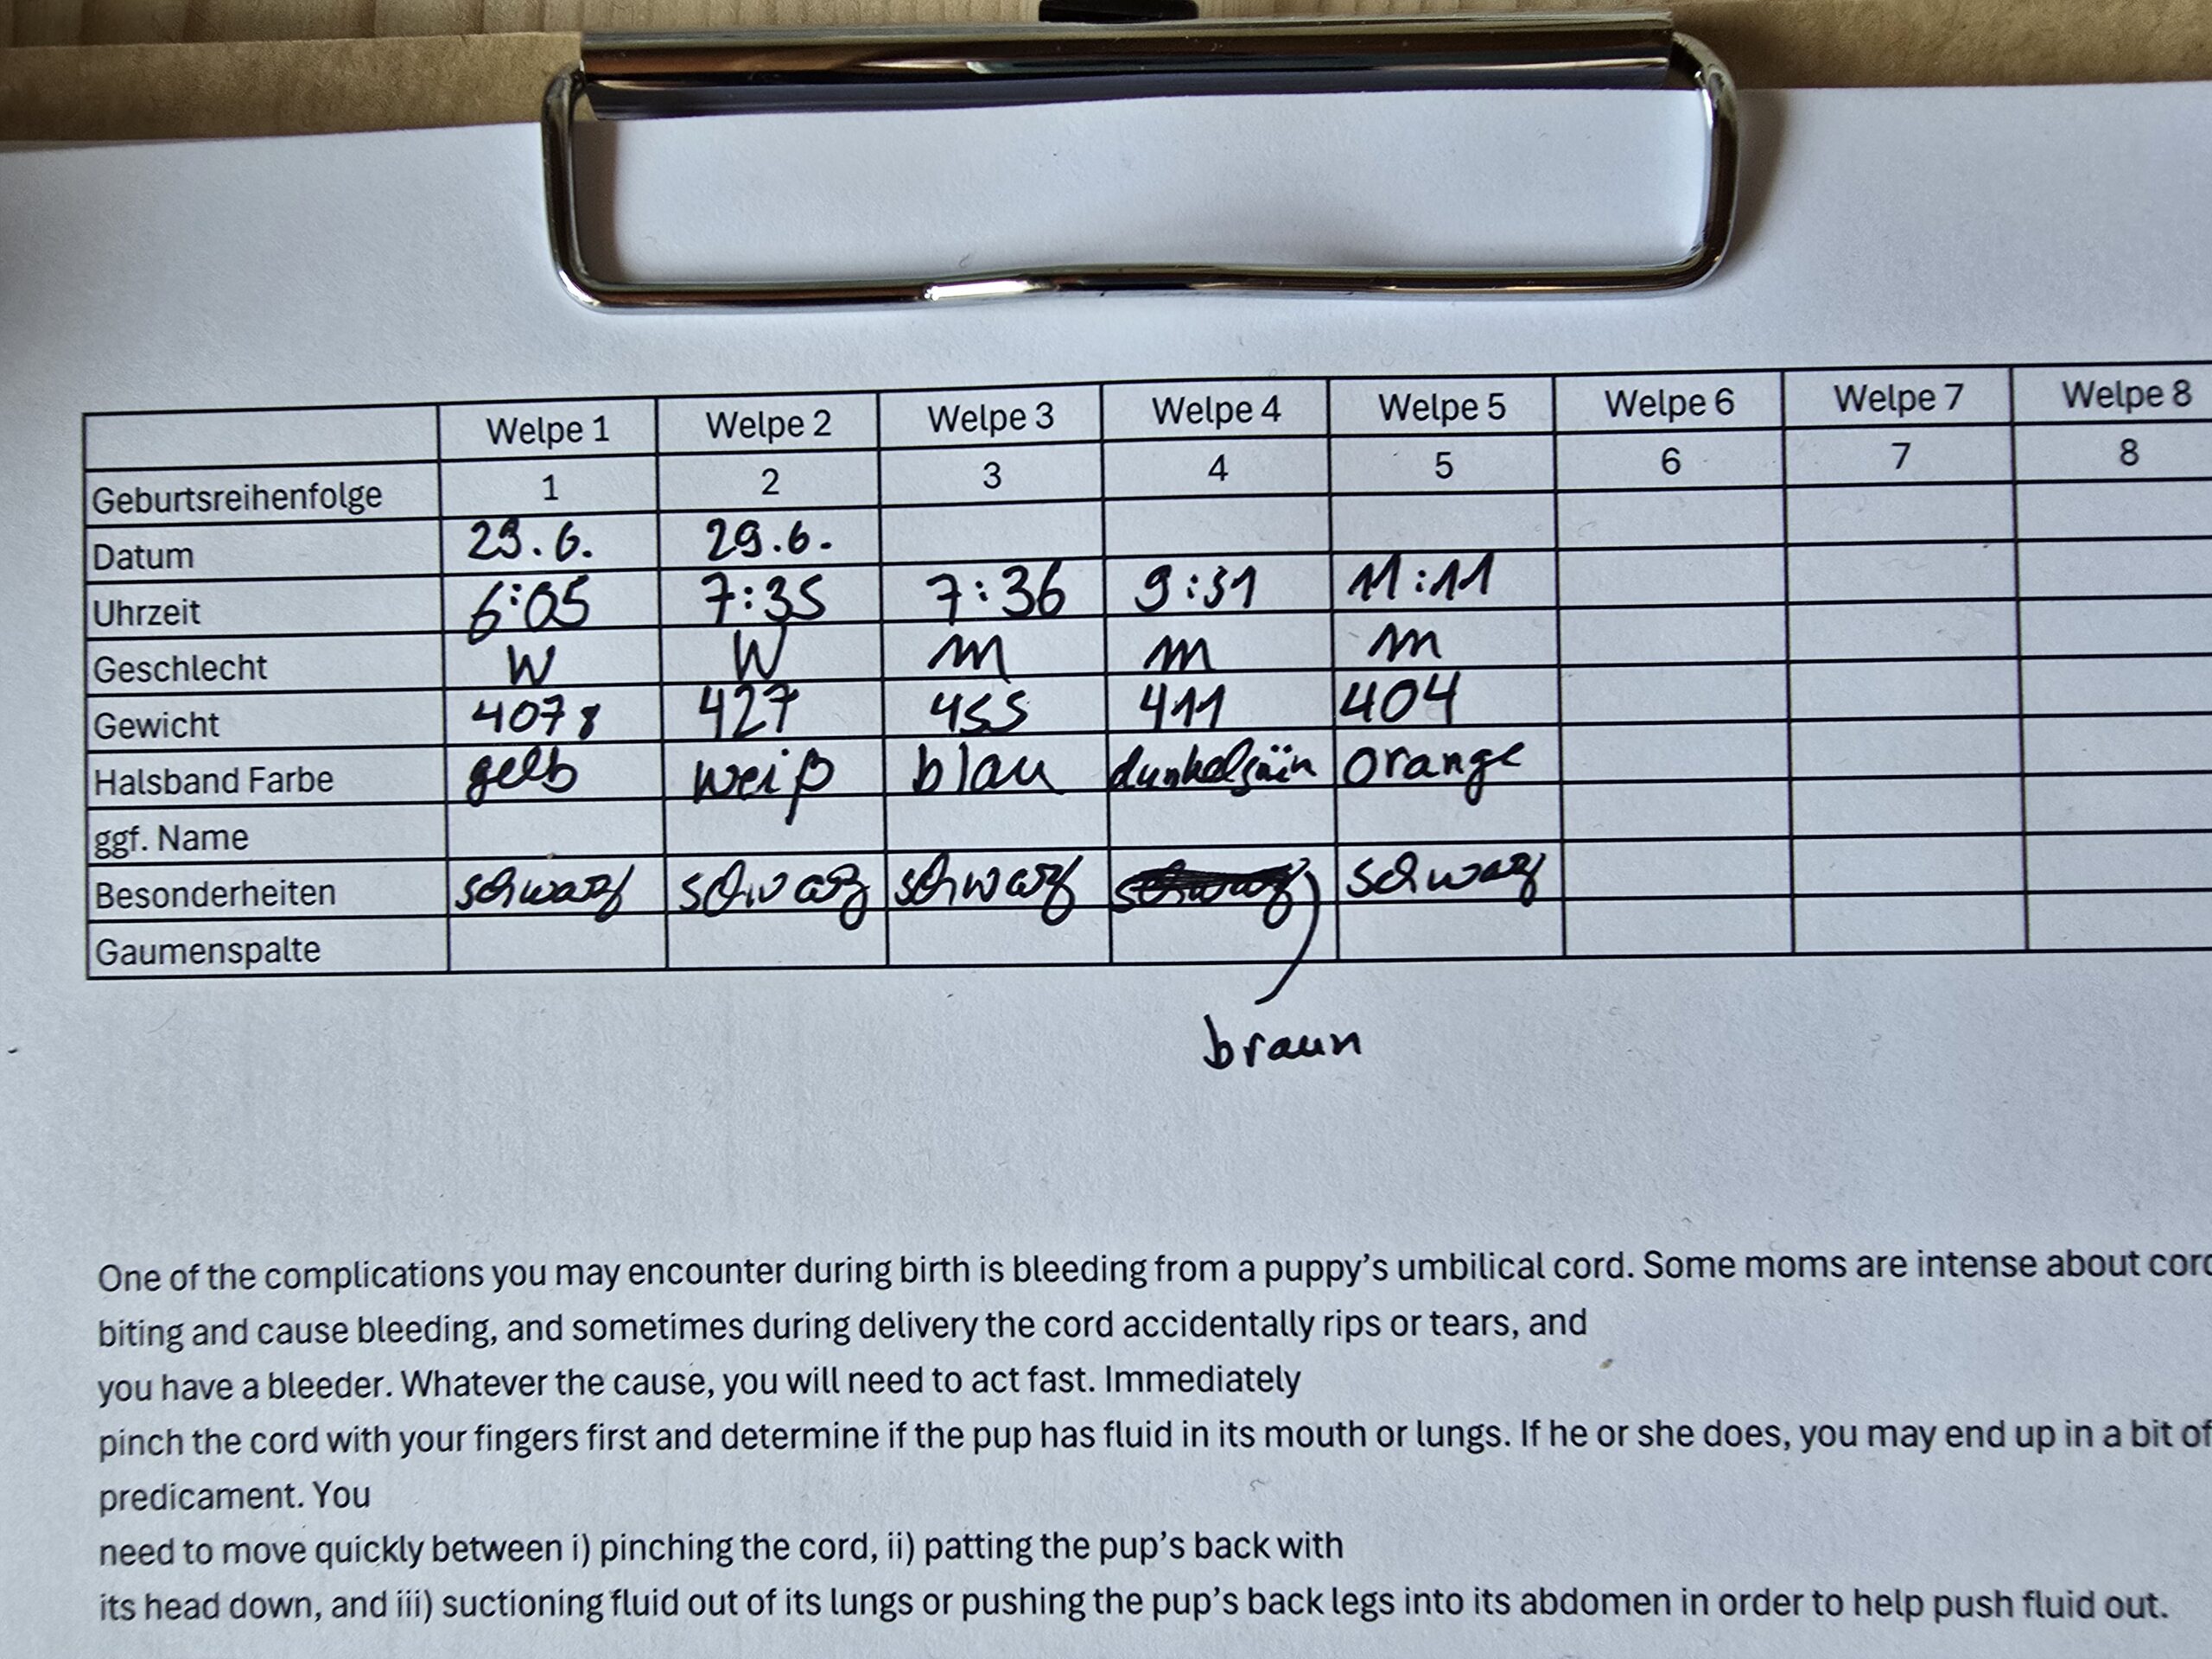 Welpe 1 Welpe 2 Welpe 3 Welpe 4 Welpe 5 Welpe 6 Welpe 7 Welpe 8
Geburtsreihenfolge 1 2 3 4 5 6 7 8
Datum 29.6. 29.6.
Uhrzeit 6:05 7:35 7:36 9:31 11:11
Geschlecht W W m m m
Gewicht 407g 427 455 411 404
Halsband Farbe gelb weiß blau dunkelgrün orange
ggf. Name
Besonderheiten schwarz schwarz schwarz schwarz schwarz
Gaumenspalte
braun
One of the complications you may encounter during birth is bleeding from a puppy's umbilical cord. Some moms are intense about cord
biting and cause bleeding, and sometimes during delivery the cord accidentally rips or tears, and
you have a bleeder. Whatever the cause, you will need to act fast. Immediately
pinch the cord with your fingers first and determine if the pup has fluid in its mouth or lungs. If he or she does, you may end up in a bit of
predicament. You
need to move quickly between i) pinching the cord, ii) patting the pup's back with
its head down, and iii) suctioning fluid out of its lungs or pushing the pup's back legs into its abdomen in order to help push fluid out.